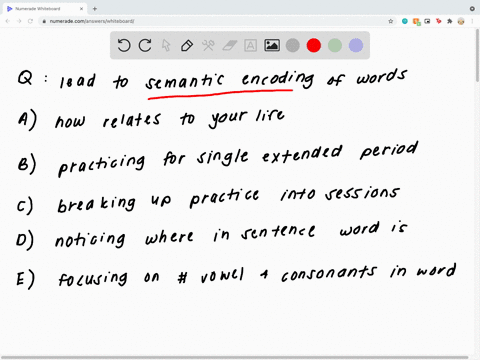 Numerade Whiteboard
numerade.com/answers/whiteboard/
Q : lead to semantic encoding of words
A) how relates to your life
B) practicing for single extended period
C) breaking up practice into sessions
D) noticing where in sentence word is
E) focusing on # vowel + consonants in word